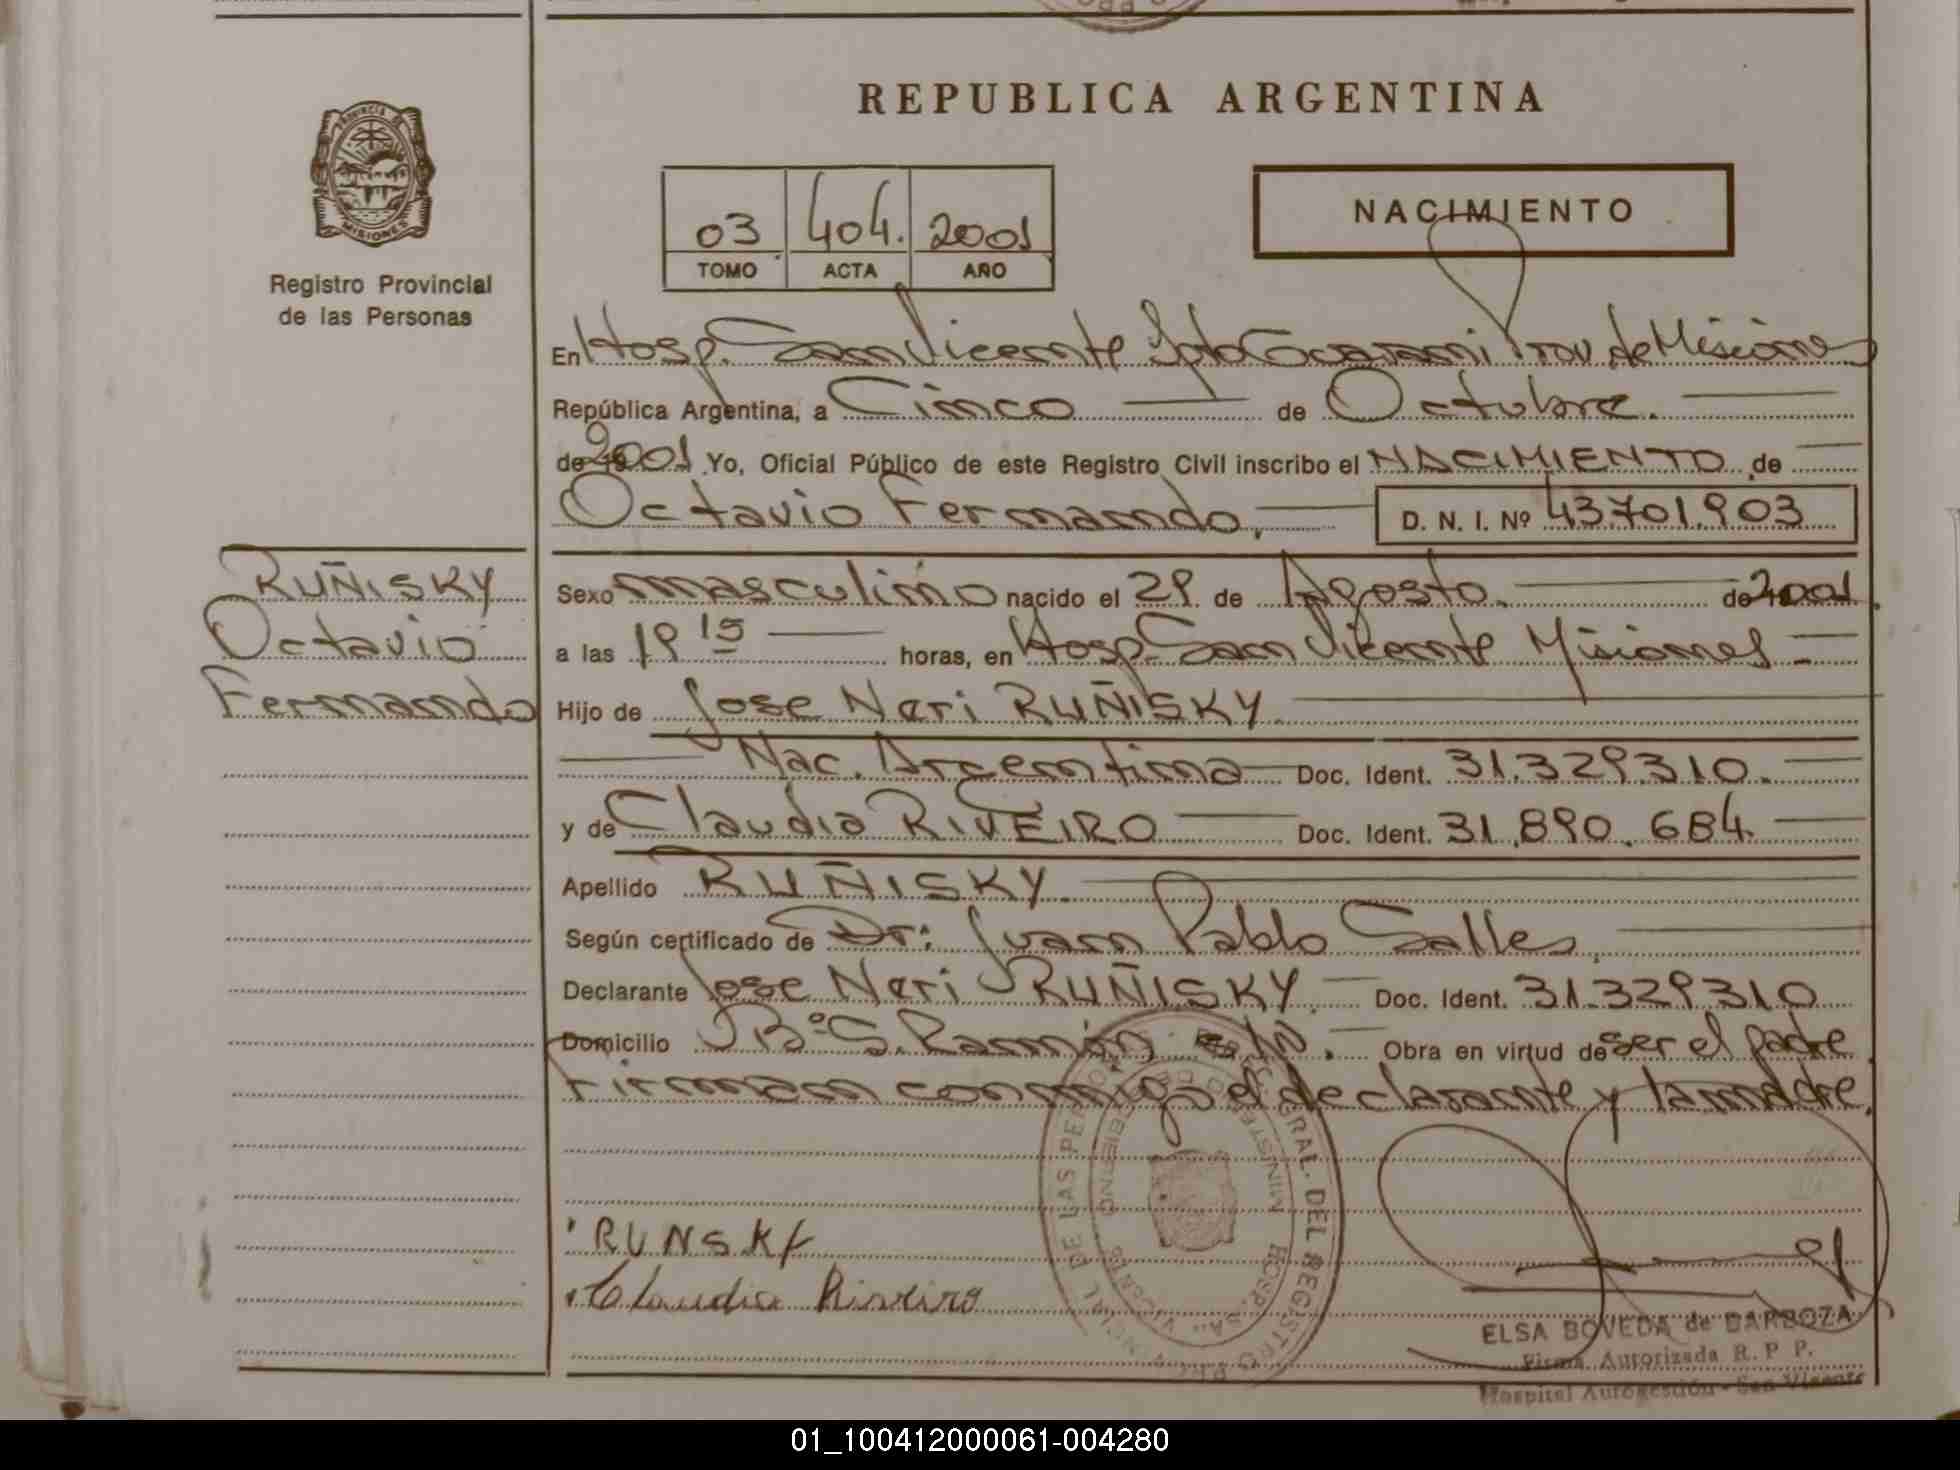 REPUBLICA ARGENTINA
PROVINCIA DE
MISIONES
Registro Provincial
de las Personas
03 404. 2001
TOMO ACTA AÑO
NACIMIENTO
En Hosp. San Vicente Dpto Guarani Prov. de Misiones
República Argentina, a Cinco de Octubre.
de 2001 Yo, Oficial Público de este Registro Civil inscribo el NACIMIENTO de
Octavio Fernando. D. N. I. Nº 43.701.903
RUÑISKY
Octavio
Fernando
Sexo masculino nacido el 29 de Agosto. de 2001.
a las 19 15 horas, en Hosp. San Vicente Misiones
Hijo de Jose Neri RUÑISKY.
Nac. Argentina Doc. Ident. 31.329.310.
y de Claudia RIVEIRO Doc. Ident. 31.890.684.
Apellido RUÑISKY.
Según certificado de Dr: Juan Pablo Salles.
Declarante Jose Neri RUÑISKY. Doc. Ident. 31.329310
Domicilio Bº S. Ramón Obra en virtud de ser el padre
Firman conmigo el declarante y la madre.
RUNSKY
Claudia Riveiro
ELSA BOVEDA de BARBOZA
Firma Autorizada R. P P.
Hospital Autogestión - San Vicente
01_100412000061-004280